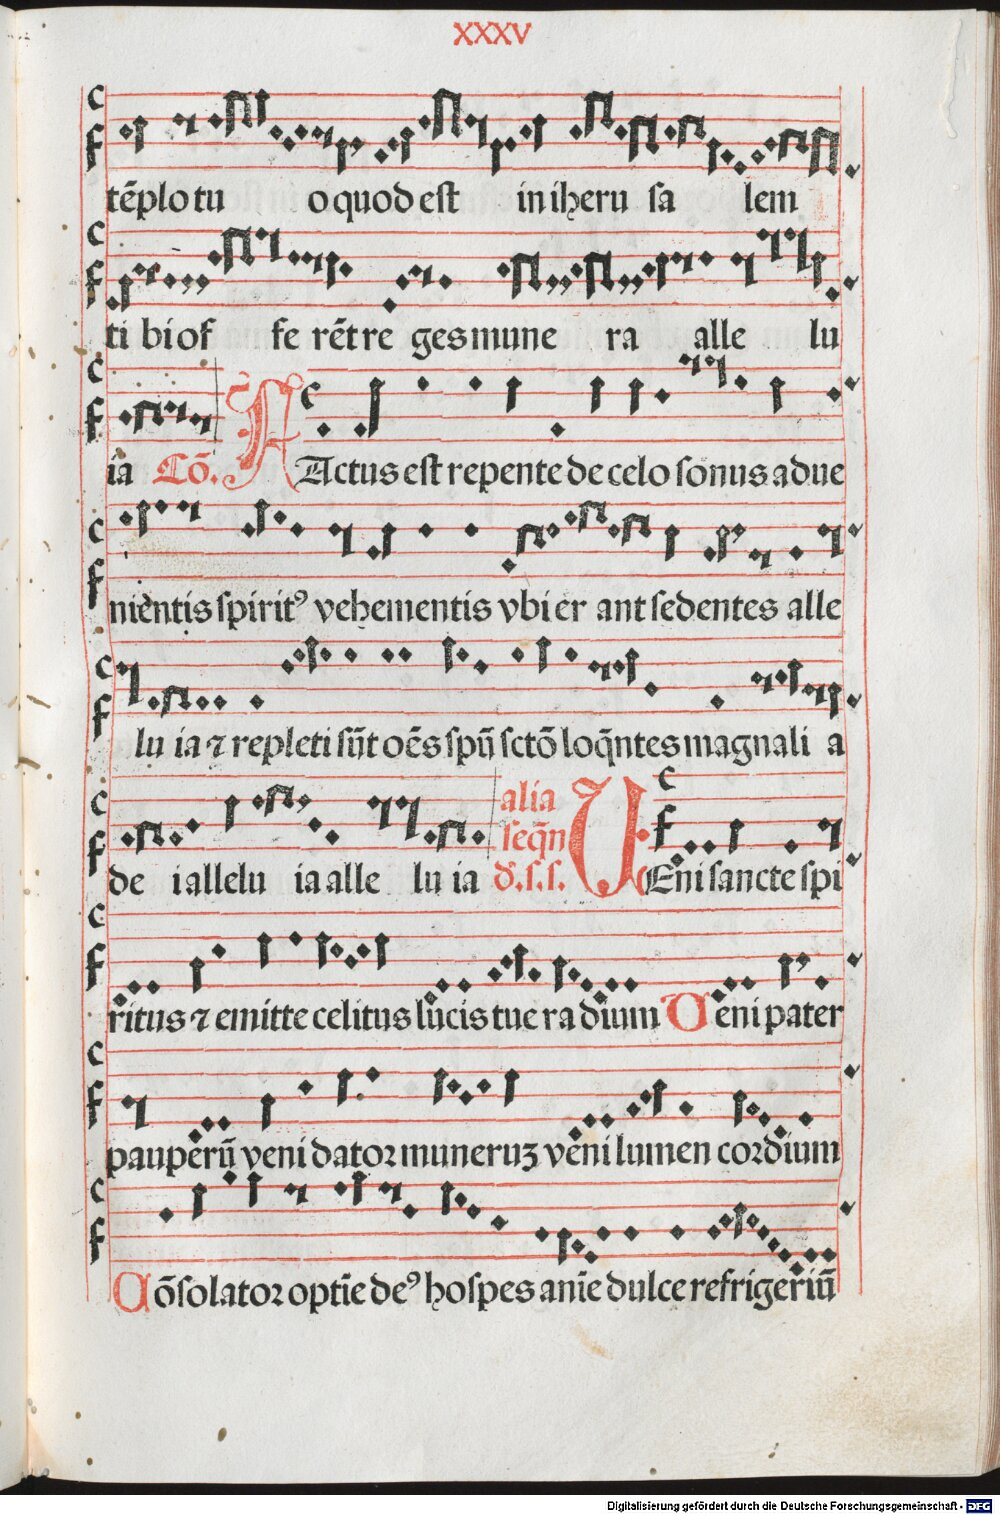 XXXV
tēplo tu o quod est in iheru sa lem
ti bi of fe rēt re ges mune ra alle lu
ia Cō. FActus est repente de celo sonus adue
nientis spiritꝰ vehementis vbi er ant sedentes alle
lu ia ⁊ repleti sūt oēs spū sctō loq̄ntes magnali a
de i allelu ia alle lu ia alia seq̄n d̄.s.s. VEni sancte spi
ritus ⁊ emitte celitus lucis tue ra dium Veni pater
pauperū veni dator muneruꝫ veni lumen cordium
Cōsolator optīe deꝰ hospes anīe dulce refrigeriū
Digitalisierung gefördert durch die Deutsche Forschungsgemeinschaft - DFG